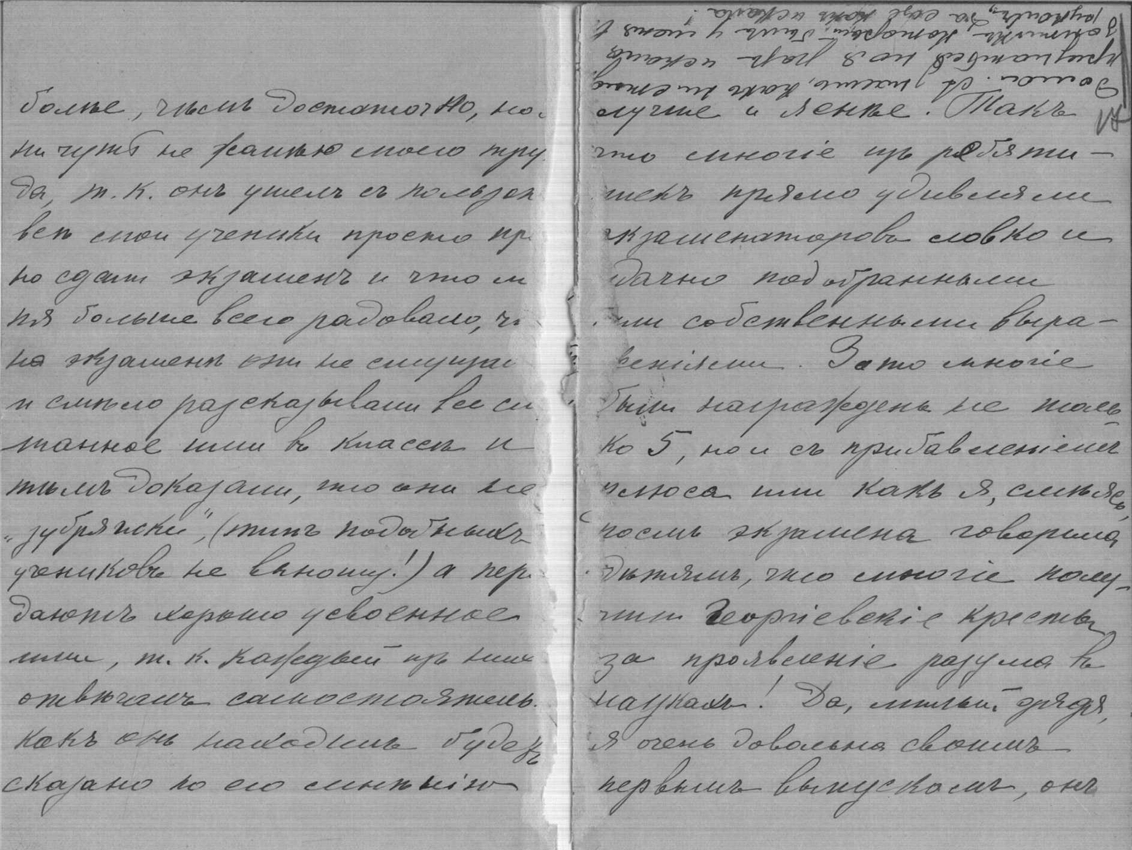 болѣе, чѣмъ достаточно, но
ни чуть не жалѣю моего тру
да, т.к. онъ ушелъ съ пользой
всѣ мои ученики просто пр
но сдали экзаменъ и что м
ня больше всего радовало, чт
на экзаменѣ они не смущали
и смѣло разсказывали все си
танное ими въ классѣ и
тѣмъ доказали, что они не
„зубряжки“, (типъ подобныхъ
учениковъ не выношу!) а пер
даютъ хорошо усвоенное
ими, т.к. каждый изъ нихъ
отвѣчалъ самостоятель
какъ онъ находилъ будетъ
сказано по его мнѣнію
лучше и яснѣе. Такъ
что многіе изъ ребяти-
шекъ прямо удивляли
экзаменаторовъ ловко и
удачно подобранными
ими собственными выра-
женіями. Зато многіе
были награждены не толь
ко 5, но и съ прибавленіемъ
плюса или какъ я, смѣясь,
послѣ экзамена говорила
дѣтямъ, что многіе полу-
чили Георгіевскіе кресты
за проявленіе разума въ
наукахъ! Да, милый дядя,
я очень довольна своимъ
первымъ выпускомъ, онъ